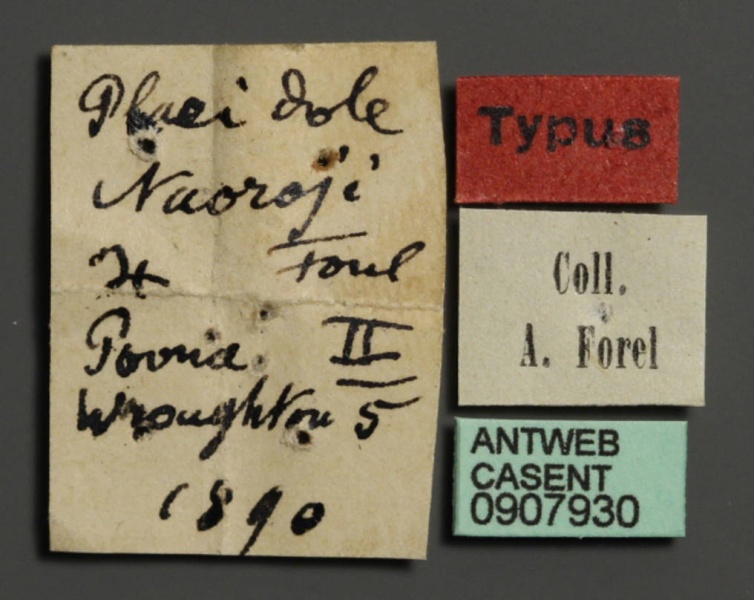 Phaei dole
Naoroji
♃ Forel
Poona. II
Wroughton 5
1890
Typus
Coll.
A. Forel
ANTWEB
CASENT
0907930